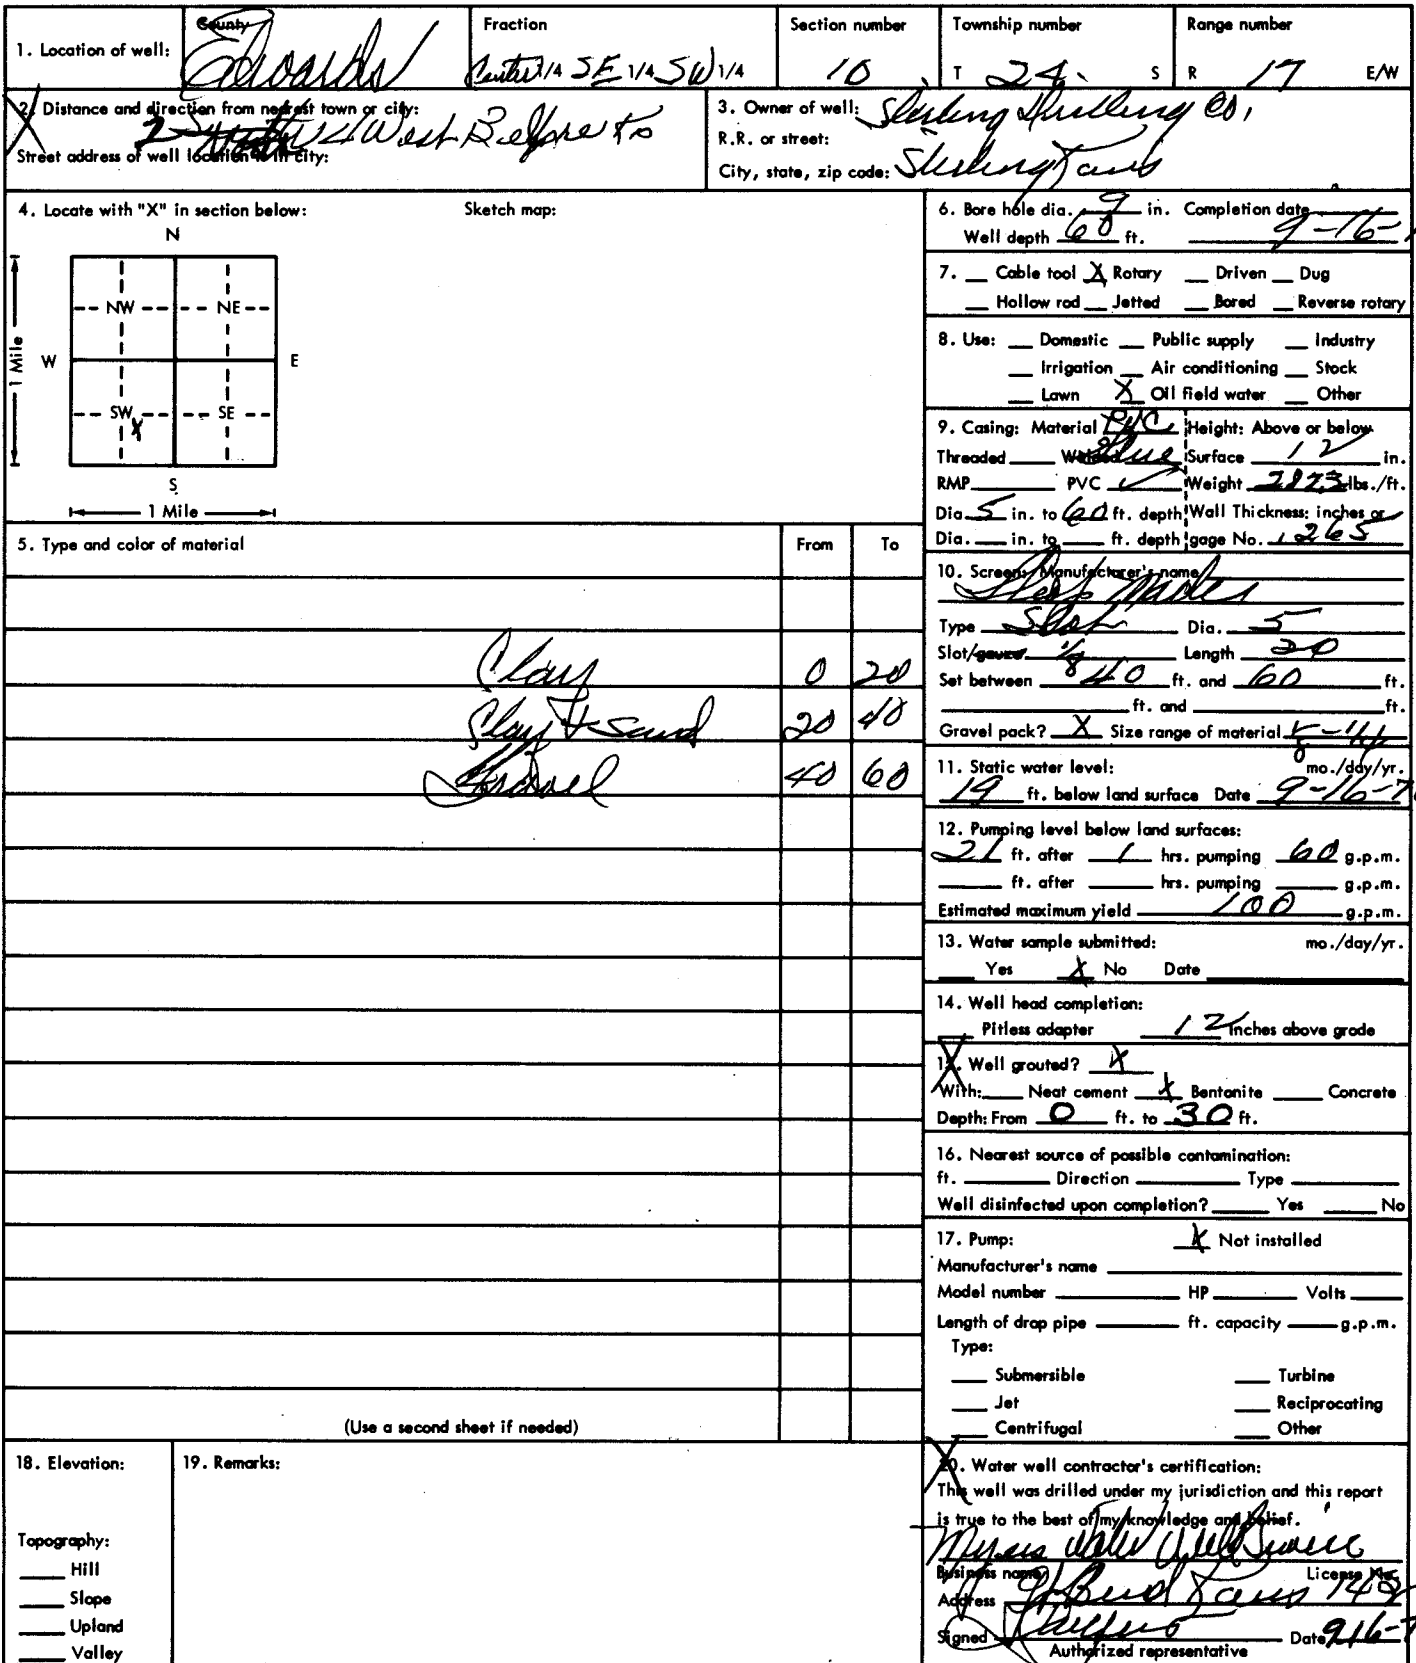 1. Location of well:
County
Edwards
Fraction
Center 1/4 SE 1/4 SW 1/4
Section number
10
Township number
T 24 S
Range number
R 17 E/W
2. Distance and direction from nearest town or city:
2 West Belpre Ks
Street address of well location if in city:
3. Owner of well: Sterling Drilling Co.
R.R. or street:
City, state, zip code: Sterling Kans
4. Locate with "X" in section below:
Sketch map:
N
NW NE
W E
1 Mile
SW SE
X
S
1 Mile
5. Type and color of material From To
Clay 0 20
Clay + Sand 20 40
Gravel 40 60
(Use a second sheet if needed)
6. Bore hole dia. 9 in. Completion date
Well depth 60 ft. 9-16-
7. Cable tool X Rotary Driven Dug
Hollow rod Jetted Bored Reverse rotary
8. Use: Domestic Public supply Industry
Irrigation Air conditioning Stock
Lawn X Oil field water Other
9. Casing: Material PVC Height: Above or below
Threaded Welded Glue Surface 12 in.
RMP PVC ✓ Weight 2823 lbs./ft.
Dia. 5 in. to 60 ft. depth Wall Thickness: inches or
Dia. in. to ft. depth gage No. .265
10. Screen: Manufacturer's name
Type Slot Dia. 5
Slot/gauze 1/8 Length 20
Set between 40 ft. and 60 ft.
ft. and ft.
Gravel pack? X Size range of material 1/8 - 1/4
11. Static water level: mo./day/yr.
19 ft. below land surface Date 9-16-7
12. Pumping level below land surfaces:
21 ft. after 1 hrs. pumping 60 g.p.m.
ft. after hrs. pumping g.p.m.
Estimated maximum yield 100 g.p.m.
13. Water sample submitted: mo./day/yr.
Yes X No Date
14. Well head completion:
Pitless adapter 12 Inches above grade
15. Well grouted? X
With: Neat cement X Bentonite Concrete
Depth: From 0 ft. to 30 ft.
16. Nearest source of possible contamination:
ft. Direction Type
Well disinfected upon completion? Yes No
17. Pump: X Not installed
Manufacturer's name
Model number HP Volts
Length of drop pipe ft. capacity g.p.m.
Type:
Submersible Turbine
Jet Reciprocating
Centrifugal Other
18. Elevation:
Topography:
Hill
Slope
Upland
Valley
19. Remarks:
20. Water well contractor's certification:
This well was drilled under my jurisdiction and this report
is true to the best of my knowledge and belief.
Myers Water Well Service
Business name License No.
Address Gt Bend Kans 142
Signed Date 9-16-7
Authorized representative